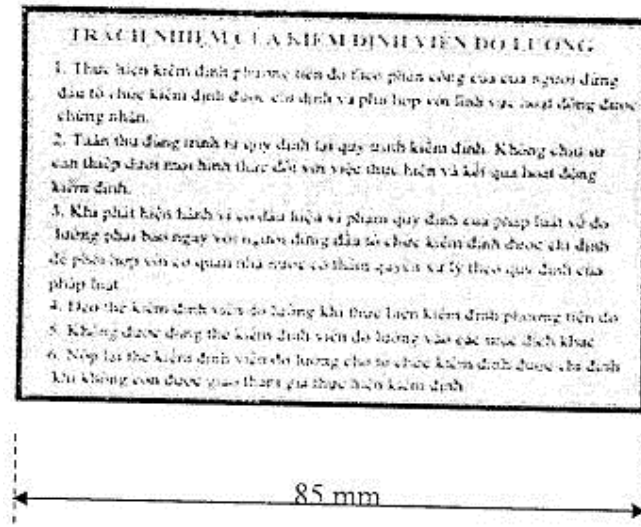 TRÁCH NHIỆM CỦA KIỂM ĐỊNH VIÊN ĐO LƯỜNG
1. Thực hiện kiểm định phương tiện đo theo phân công của của người đứng
đầu tổ chức kiểm định được chỉ định và phù hợp với lĩnh vực hoạt động được
chứng nhận.
2. Tuân thủ đúng trình tự quy định tại quy trình kiểm định. Không chịu sự
can thiệp dưới mọi hình thức đối với việc thực hiện và kết quả hoạt động
kiểm định.
3. Khi phát hiện hành vi có dấu hiệu vi phạm quy định của pháp luật về đo
lường phải báo ngay với người đứng đầu tổ chức kiểm định được chỉ định
để phối hợp với cơ quan nhà nước có thẩm quyền xử lý theo quy định của
pháp luật
4. Đeo thẻ kiểm định viên đo lường khi thực hiện kiểm định phương tiện đo
5. Không được dùng thẻ kiểm định viên đo lường vào các mục đích khác
6. Nộp lại thẻ kiểm định viên đo lường cho tổ chức kiểm định được chỉ định
khi không còn được giao tham gia thực hiện kiểm định
85 mm